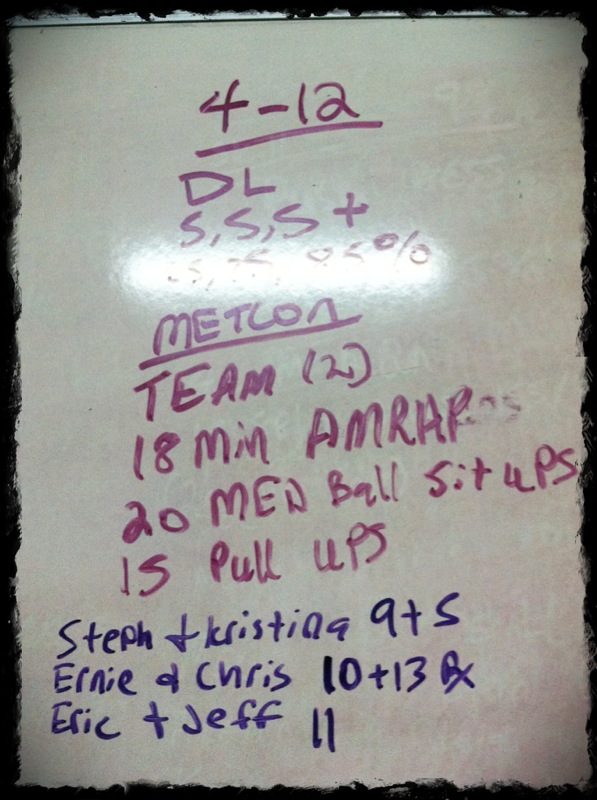 4-12
DL
5,5,5+
85%
METCON
TEAM (2)
18 Min AMRAP
20 MED Ball Sit uPS
15 Pull uPS
Steph + kristina 9+5
Ernie & Chris 10+13 Rx
Eric + Jeff 11